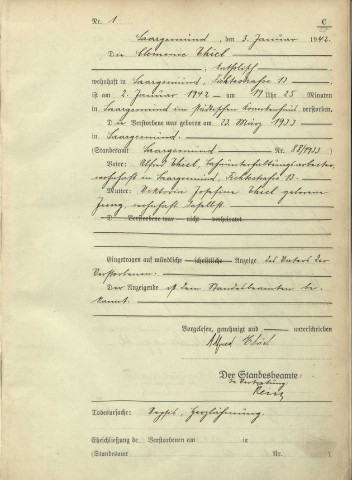 Nr. 1
C
Saargemünd, den 3. Januar 1942.
Die Clemence Thiel,
katholisch
wohnhaft in Saargemünd, 13
ist am 2. Januar 1942 um 19 Uhr 25 Minuten
in Saargemünd im städtischen verstorben.
Die Verstorbene war geboren am 23. März 1933
in Saargemünd.
(Standesamt Saargemünd Nr. 88/1933
Vater: Alfred Thiel,
wohnhaft in Saargemünd, 13.
Mutter: Viktorin Josefine Thiel geborene
Jung, wohnhaft daselbst.
D Verstorbene war nicht verheiratet
Eingetragen auf mündliche schriftliche Anzeige des Vaters der
Verstorbenen.
Der Anzeigende ist dem Standesbeamten be-
kannt.
Vorgelesen, genehmigt und unterschrieben
Alfred Thiel
Der Standesbeamte:
In Vertretung
Todesursache: Herzlähmung.
Eheschließung de Verstorbenen am in
(Standesamt Nr.